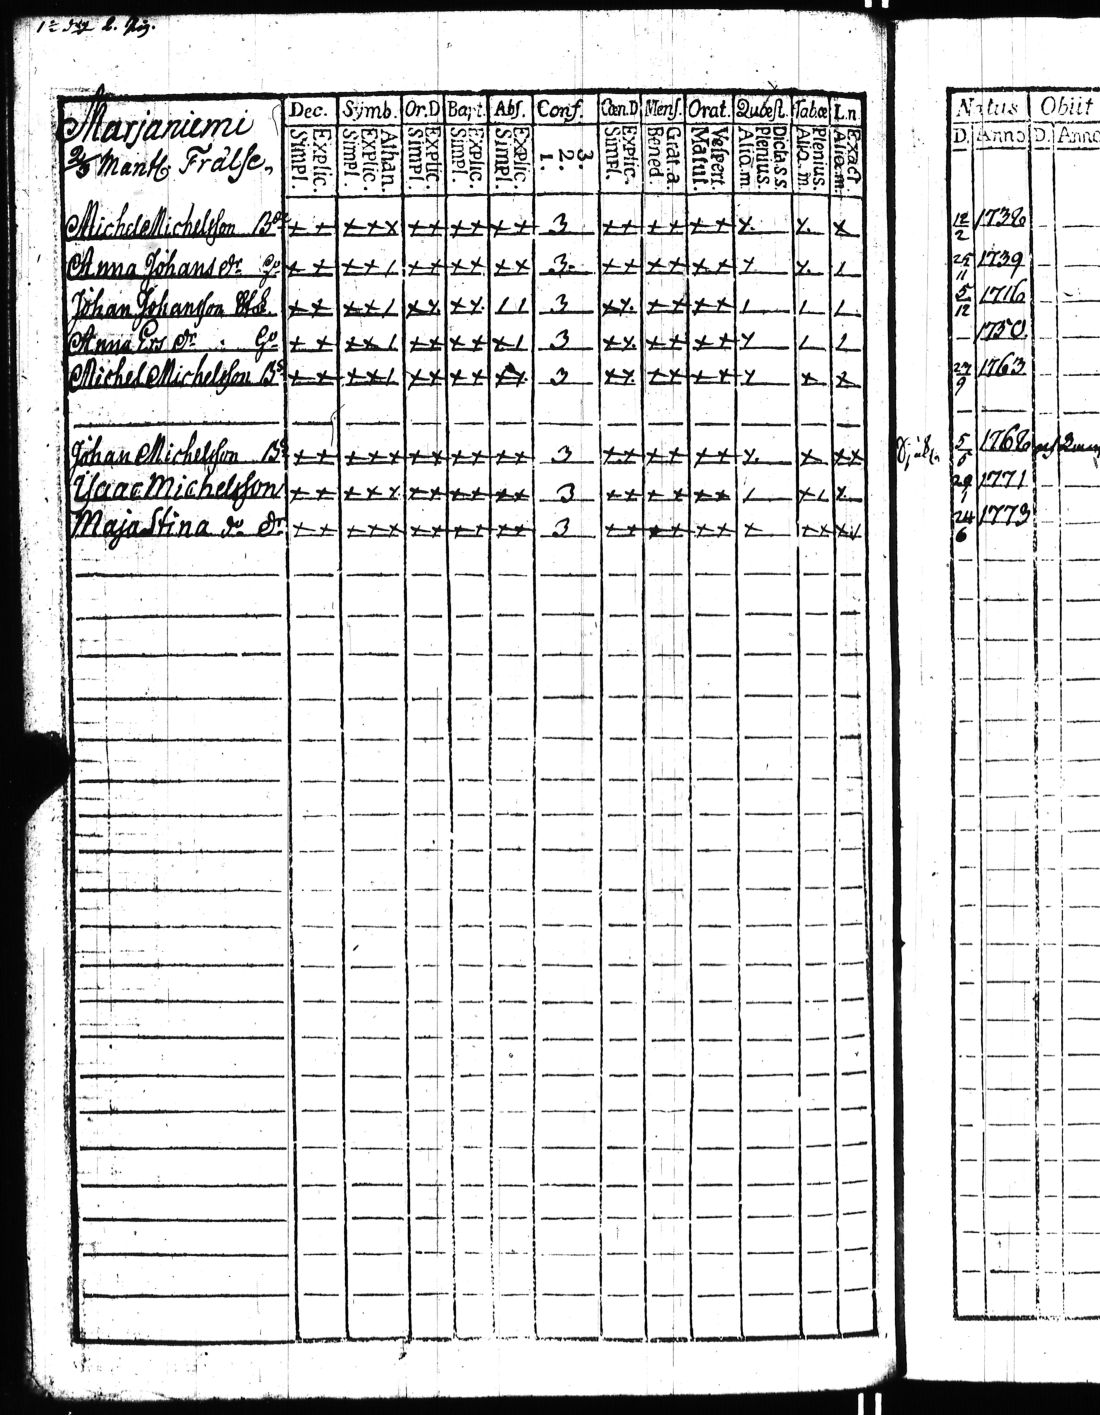 Marjaniemi
2/3 Mantl. Frälse.
Dec. Symb. Or.D Bapt. Abs. Conf. Cœn.D Mens. Orat. Quæst. Tabœ L.n
Explic. Simpl.
Athan. Explic. Simpl.
Explic. Simpl.
Explic. Simpl.
Explic. Simpl.
3. 2. 1.
Explic. Simpl.
Grat.a. Bened.
Vespert. Matut.
Dicta s.s. Plenius. Aliq.m.
Plenius. Aliq.m.
Exact. Aliq.m.
Natus Obiit
D. Anno D. Anno
Michel Michelsson Bde x x x x x x x x x x x 3 x x x x x x x. x. x 12/2 1738
Anna Johans dr. x x x x 1 x x x x x x 3. x x x x x x x x. 1 25/11 1739
Johan Johansson x x x x 1 x x. x x. 1 1 3 x x. x x x x 1 1 1. 5/12 1716
Anna Ers dr. x x x x 1 x x x x x 1 3 x x. x x x x x 1 1 1750.
Michel Michelsson Bs x x x x 1 x x x x x x. 3 x x. x x x x x x x 27/9 1763
Johan Michelsson Bs x x x x x x x x x x x 3 x x x x x x x. x x x 5/8 1768
Isaac Michelsson x x x x x x x x x x x 3 x x x x x x 1 x 1 x. 29/1 1771
Maja Stina do dr x x x x x x x x x x x 3 x x x x x x x x x x 1 24/6 1773